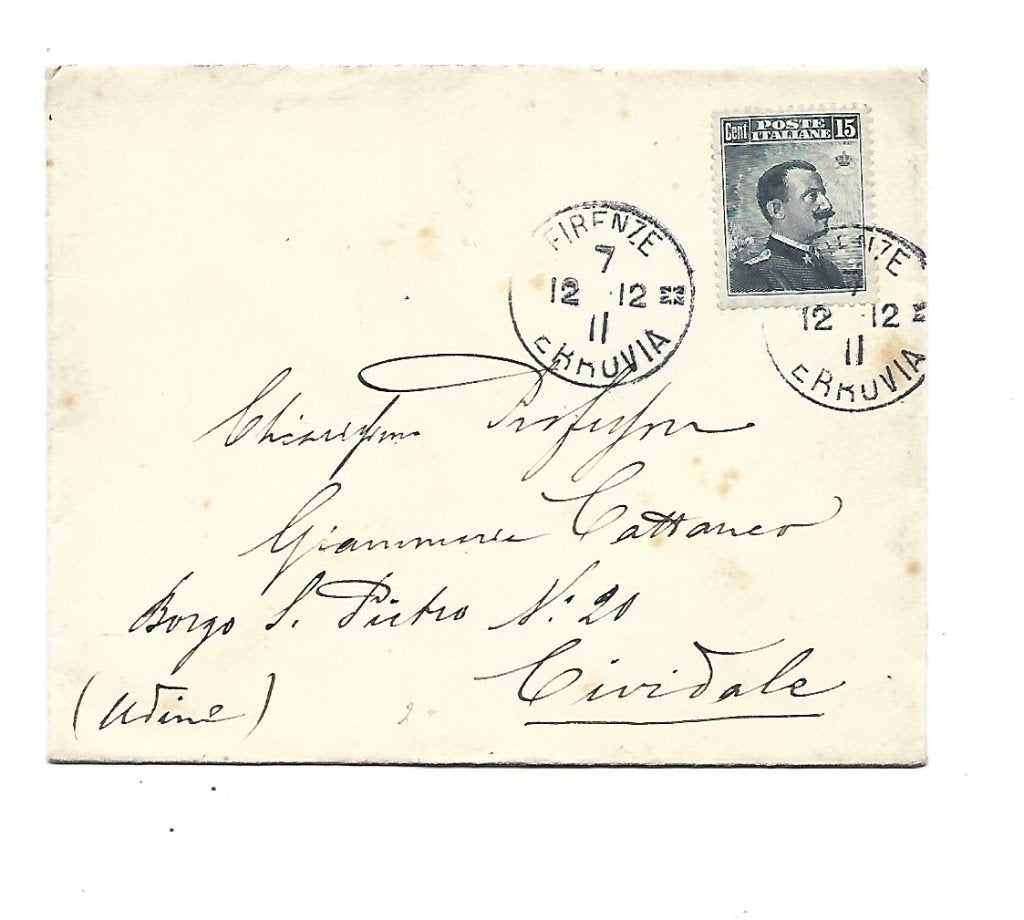 Cent POSTE ITALIANE 15
FIRENZE
7
12 12
11
ERROVIA
ENZE
12 12
11
ERROVIA
Chiarissimo Professore
Gianmaria Cattaneo
Borgo S. Pietro N.º 20
Cividale
(Udine)